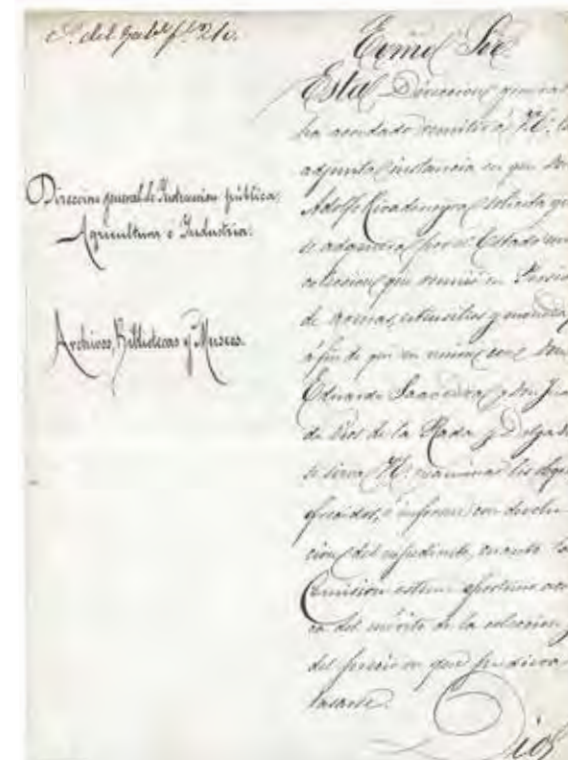 Direccion general de Instruccion pública.
Agricultura é Industria.
Archivos, Bibliotecas y Museos.
Excmo Sor
Esta Direccion general
ha acordado remitir á V.E. la
adjunta instancia en que Don
Adolfo Rivadeneyra solicita que
se adquiera por el Estado una
coleccion que reunió en Persia
de armas, utensilios y monedas,
á fin de que en union con Don
Eduardo Saavedra y Don Juan
de Dios de la Rada y Delgado
se sirva V.E. examinar los
ofrecidos, é informar con devolu
cion del expediente, cuanto la
Comision estime oportuno acer
ca del mérito de la coleccion y
del precio en que pudiera
tasarse.
Dios